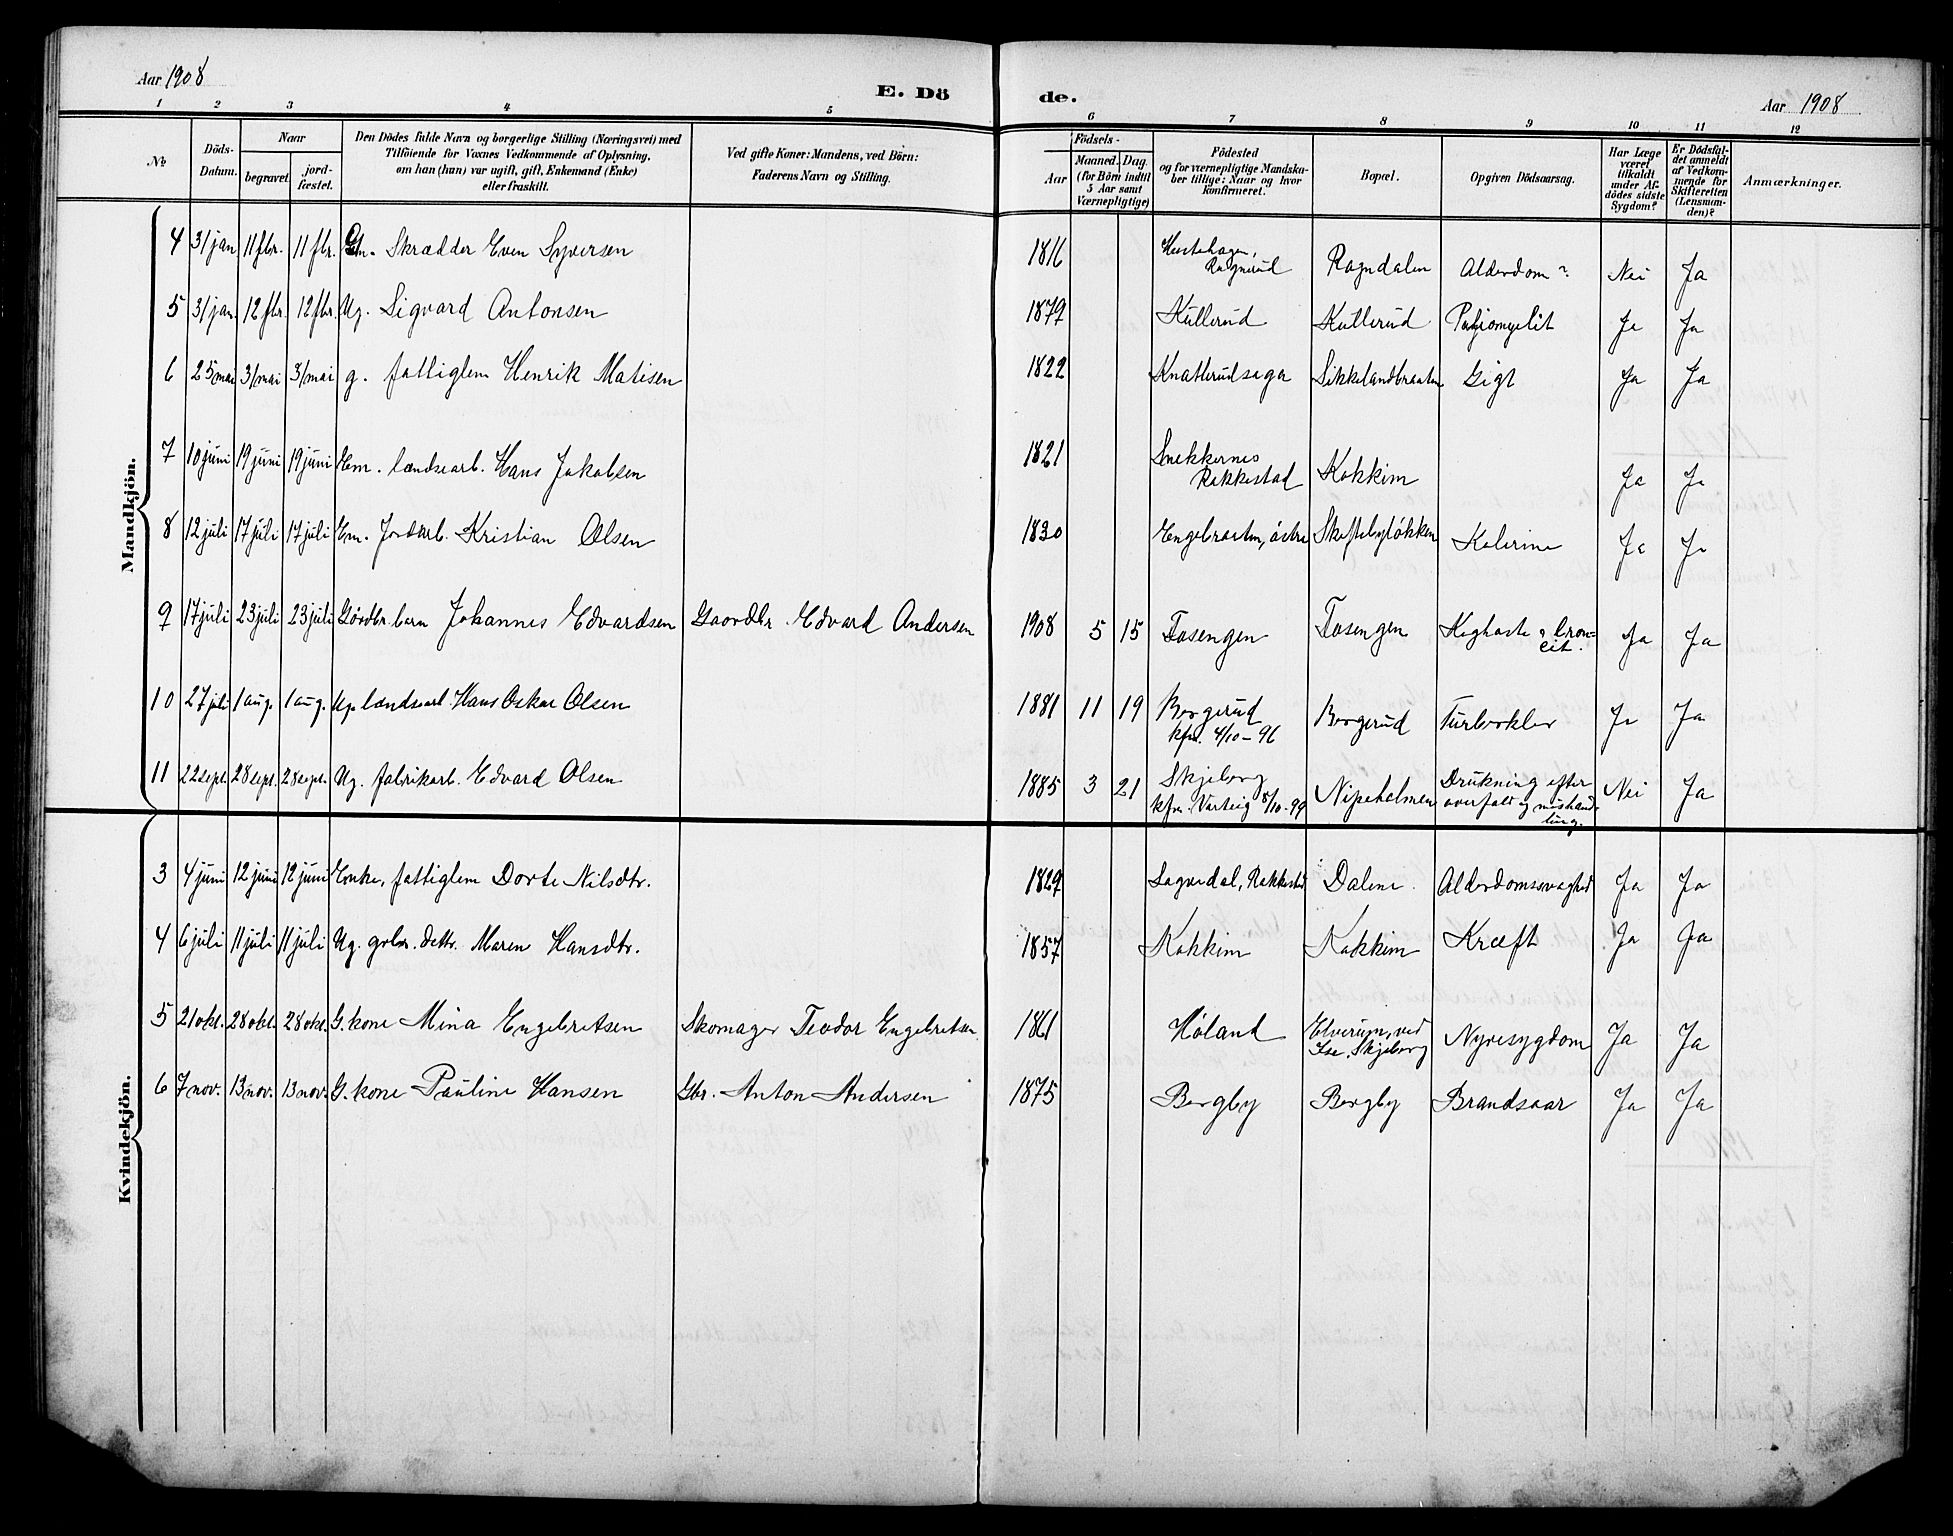 Aar 1908
E. Dö
de.
Aar 1908
1 2 3 4 5 6 7 8 9 10 11 12
No
Döds-
Datum.
Naar
begravet.
jord-
fæstet.
Den Dödes fulde Navn og borgerlige Stilling (Næringsvei) med
Tilföiende for Voxnes Vedkommende af Oplysning,
om han (hun) var ugift, gift, Enkemand (Enke)
eller fraskilt.
Ved gifte Koner: Mandens, ved Börn:
Faderens Navn og Stilling.
Födsels-
Aar
Maaned. Dag.
(for Börn indtil
5 Aar samt
Værnepligtige)
Födested
og for værnepligtige Mandska-
ber tillige: Naar og hvor
konfirmeret.
Bopæl.
Opgiven Dödsaarsag.
Har Læge
været
tilkaldt
under Af-
dödes sidste
Sygdom?
Er Dödsfal-
det anmeldt
af Vedkom-
mende for
Skifteretten
(Lensman-
den)?
Anmærkninger.
Mandkjön.
4 31 jan 11 fbr. 11 fbr. Em. Skrædder Even Syversen 1816
Ragnerud Ragndalen Alderdom? Nei Ja
5 31 jan. 12 fbr. 12 fbr. Ug. Sigvard Antonsen 1879 Kullerud Kullerud Ja Ja
6 25 mai 31 mai 31 mai g. fattiglem Henrik Matisen 1822 Knatterudsaga Sikkelandbraaten Gigt Ja Ja
7 10 juni 19 juni 19 juni Em. løndsarb. Hans Jakobsen 1821 Snekkernes
Rakkestad Kakkim Ja Ja
8 12 juli 17 juli 17 juli Em. Jordarb. Kristian Olsen 1830 Engebraaten, östre Skeftebyløkken Ja Ja
9 17 juli 23 juli 23 juli Gaardbr. barn Johannes Edvardsen Gaardbr. Edvard Andersen 1908 5 15 Tosengen Tosengen Kighoste & bron-
cit. Ja Ja
10 27 juli 1 aug. 1 aug. Ug. Hans Oskar Olsen 1881 11 19 Borgerud
kfm. 4/10-96 Borgerud Turberkler Ja Ja
11 22 sept. 28 sept. 28 sept. Ug. fabrikarb. Edvard Olsen 1885 3 21 Skjeberg
kfm. Varteig 8/10-99 Nipeholmen Drukning efter
overfald og mishand-
ling. Nei Ja
Kvindekjön.
3 4 juni 12 juni 12 juni Enke, fattiglem Dorte Nilsdtr. 1829 Rakkestad Dalene. Alderdomssvaghed Ja Ja
4 6 juli 11 juli 11 juli Ug. grbr. dattr. Maren Hansdtr. 1857 Kakkim Kakkim Kræft Ja Ja
5 21 okt. 28 okt. 28 okt. G. kone Mina Engebretsen Skomager Teodor Engebretsen 1861 Høland Elverum, ved
Ise, Skjeberg Nyresygdom Ja Ja
6 7 nov. 13 nov. 13 nov. G. kone Pauline Hansen Gbr. Anton Andersen 1875 Bergby Bergby Brandsaar Ja Ja